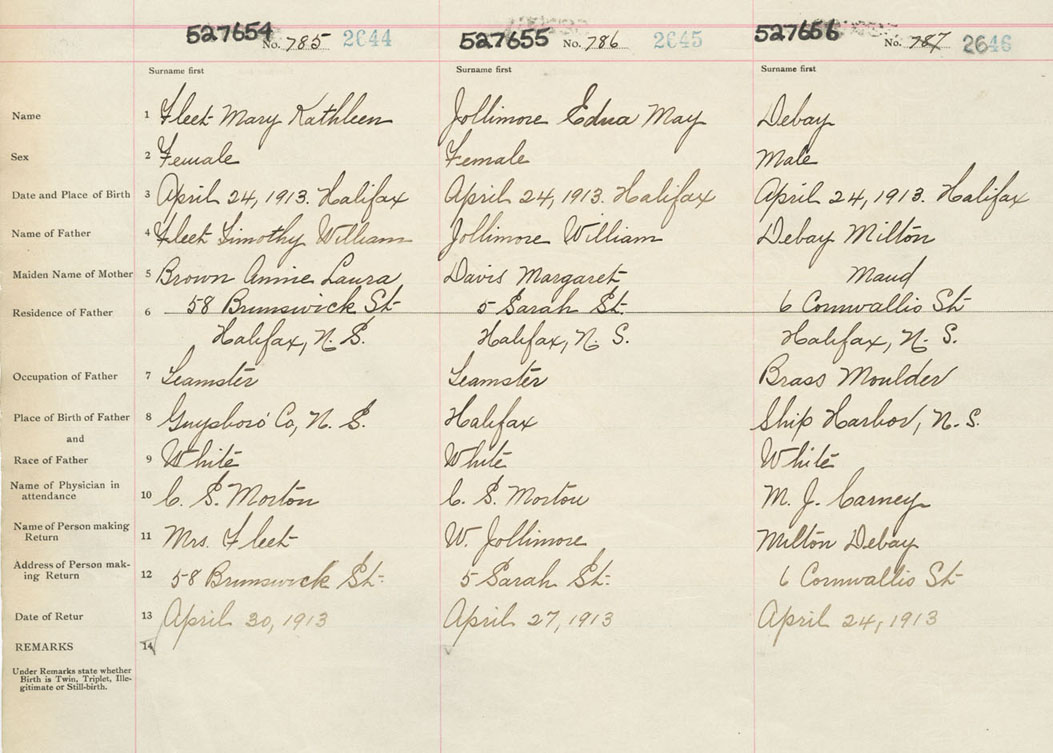 527654 No. 785 2644 527655 No. 786 2645 527656 No. 787 2646
Surname first Surname first Surname first
Name 1 Fleet Mary Kathleen Jollimore Edna May Debay
Sex 2 Female Female Male
Date and Place of Birth 3 April 24, 1913. Halifax April 24, 1913. Halifax April 24, 1913. Halifax
Name of Father 4 Fleet Timothy William Jollimore William Debay Milton
Maiden Name of Mother 5 Brown Annie Laura Davis Margaret Maud
Residence of Father 6 58 Brunswick St 5 Sarah St. 6 Cornwallis St
Halifax, N. S. Halifax, N. S. Halifax, N. S.
Occupation of Father 7 Teamster Teamster Brass Moulder
Place of Birth of Father 8 Guysboro' Co, N. S. Halifax Ship Harbor, N. S.
and
Race of Father 9 White White White
Name of Physician in
attendance 10 C. S. Morton C. S. Morton M. J. Carney
Name of Person making
Return 11 Mrs. Fleet W. Jollimore Milton Debay
Address of Person mak-
ing Return 12 58 Brunswick St. 5 Sarah St. 6 Cornwallis St
Date of Retur 13 April 30, 1913 April 27, 1913 April 24, 1913
REMARKS 14
Under Remarks state whether
Birth is Twin, Triplet, Ille-
gitimate or Still-birth.